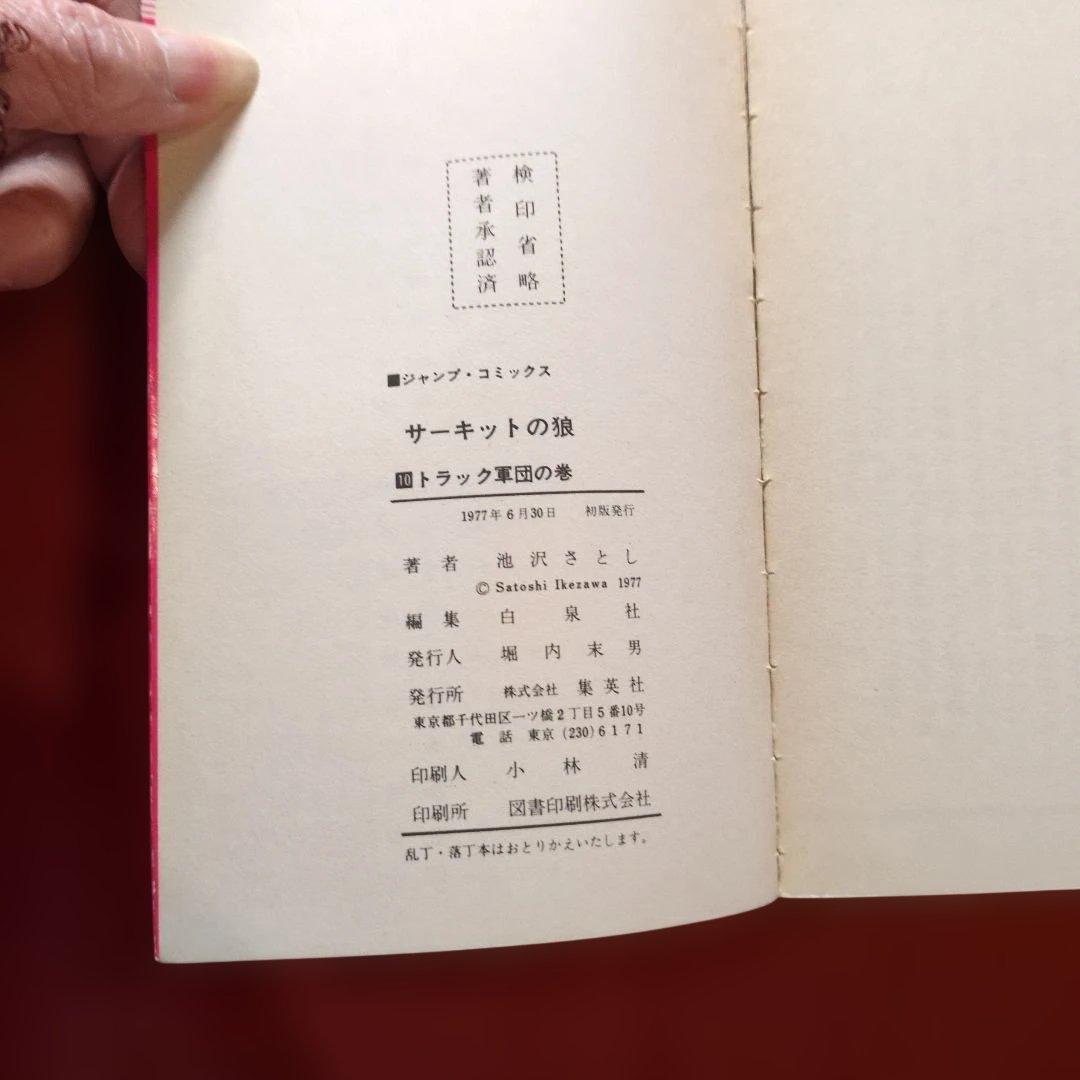 検印省略
著者承認済
■ジャンプ・コミックス
サーキットの狼
10トラック軍団の巻
1977年6月30日 初版発行
著者 池沢さとし
© Satoshi Ikezawa 1977
編集 白泉社
発行人 堀内末男
発行所 株式会社 集英社
東京都千代田区一ツ橋2丁目5番10号
電話 東京 (230)6171
印刷人 小林清
印刷所 図書印刷株式会社
乱丁・落丁本はおとりかえいたします。